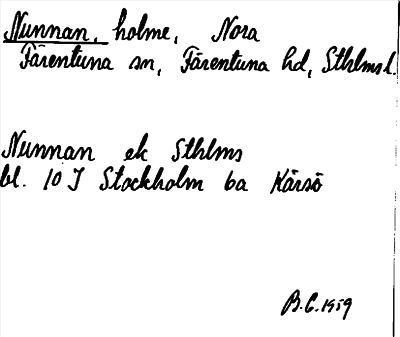 Nunnan, holme, Nora
Färentuna sn, Färentuna hd, Sthlms l.
Nunnan ek Sthlms
bl. 10 I Stockholm 6a Kärsö
B.C. 1959